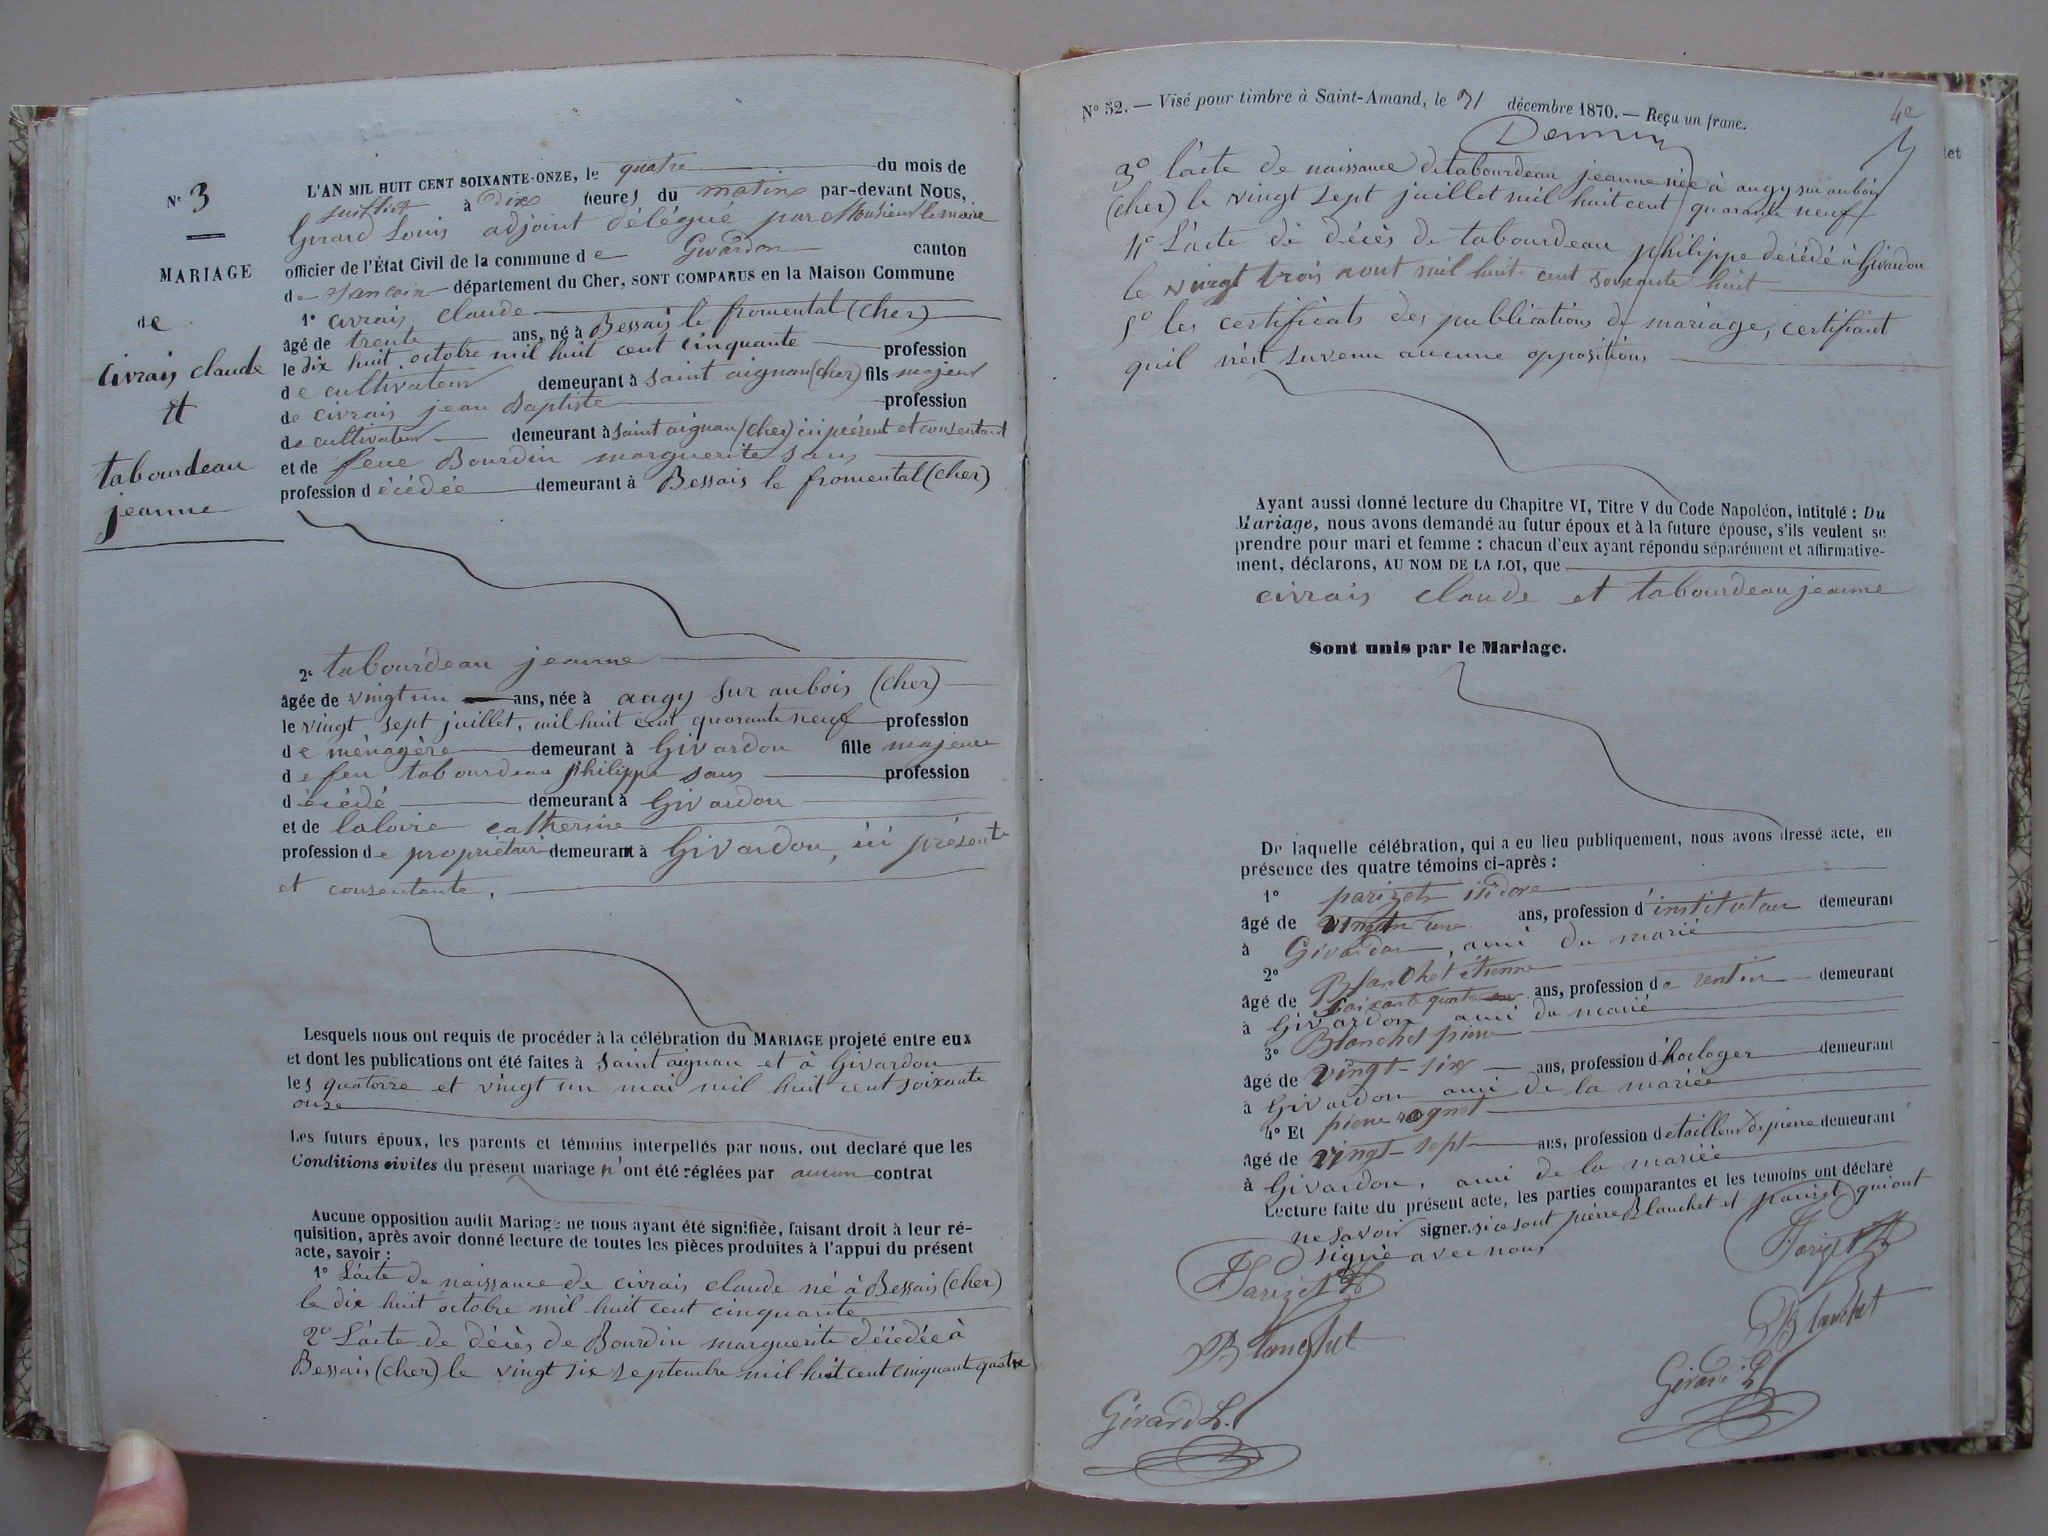 N° 3
MARIAGE
de
civrais claude
et
tabourdeau
jeanne
L'AN MIL HUIT CENT SOIXANTE-ONZE, le quatre du mois de
juillet à dix heures du matin par-devant NOUS,
Girard Louis adjoint délégué par Monsieur le maire
officier de l'État Civil de la commune de Givardon canton
de Sancoin département du Cher, SONT COMPARUS en la Maison Commune
1° civrais claude
âgé de trente ans, né à Bessais le fromental (cher)
le dix huit octobre mil huit cent cinquante profession
de cultivateur demeurant à saint aignan (cher) fils majeur
de civrais jean Baptiste profession
de cultivateur demeurant à saint aignan (cher) ici présent et consentant
et de feue Bourdin marguerite sans
profession décédée demeurant à Bessais le fromental (cher)
2° tabourdeau jeanne
âgée de vingt un ans, née à augy sur aubois (cher)
le vingt sept juillet, mil huit cent quarante neuf profession
de ménagère demeurant à Givardon fille majeure
de feu tabourdeau philippe sans profession
décédé demeurant à Givardon
et de laloire catherine
profession de propriétaire demeurant à Givardon, ici présente
et consentante.
Lesquels nous ont requis de procéder à la célébration du MARIAGE projeté entre eux
et dont les publications ont été faites à saint aignan et à Givardon
les quatorze et vingt un mai mil huit cent soixante
onze
Les futurs époux, les parents et témoins interpellés par nous, ont declaré que les
Conditions civiles du présent mariage n'ont été réglées par aucun contrat
Aucune opposition audit Mariage ne nous ayant été signifiée, faisant droit à leur ré-
quisition, après avoir donné lecture de toutes les pièces produites à l'appui du présent
acte, savoir :
1° L'acte de naissance de civrais claude né à Bessais (cher)
le dix huit octobre mil huit cent cinquante
2° L'acte de décès de Bourdin marguerite décédée à
Bessais (cher) le vingt six septembre mil huit cent cinquante quatre
N° 52. — Visé pour timbre à Saint-Amand, le 31 décembre 1870. — Reçu un franc.
3° l'acte de naissance de tabourdeau jeanne née à augy sur aubois
(cher) le vingt sept juillet mil huit cent quarante neuf
4° L'acte de décès de tabourdeau philippe décédé à Givardon
le vingt trois aout mil huit cent soixante huit
5° les certificats des publications de mariage, certifiant
quil n'est survenu aucune oppositions
Ayant aussi donné lecture du Chapitre VI, Titre V du Code Napoléon, intitulé : Du
Mariage, nous avons demandé au futur époux et à la future épouse, s'ils veulent se
prendre pour mari et femme : chacun d'eux ayant répondu séparément et affirmative-
ment, déclarons, AU NOM DE LA LOI, que
civrais claude et tabourdeau jeanne
Sont unis par le Mariage.
De laquelle célébration, qui a eu lieu publiquement, nous avons dressé acte, en
présence des quatre témoins ci-après :
1° parizet isidore
âgé de vingt une ans, profession d'instituteur demeurant
à Givardon, ami du marié
2° Blanchet étienne
âgé de soixante quatre ans, profession de rentier demeurant
à Givardon ami du marié
3° Blanchet pierre
âgé de vingt-six ans, profession d'horloger demeurant
à Givardon ami de la mariée
4° Et pierre rognet
âgé de vingt-sept ans, profession de tailleur de pierre demeurant
à Givardon, ami de la mariée
Lecture faite du présent acte, les parties comparantes et les temoins ont déclaré
ne savoir signer. si ce sont pierre Blanchet et parizet qui ont
signé avec nous
Parizet
Parizet
Blanchet
Blanchet
Girard L.
Girard L.